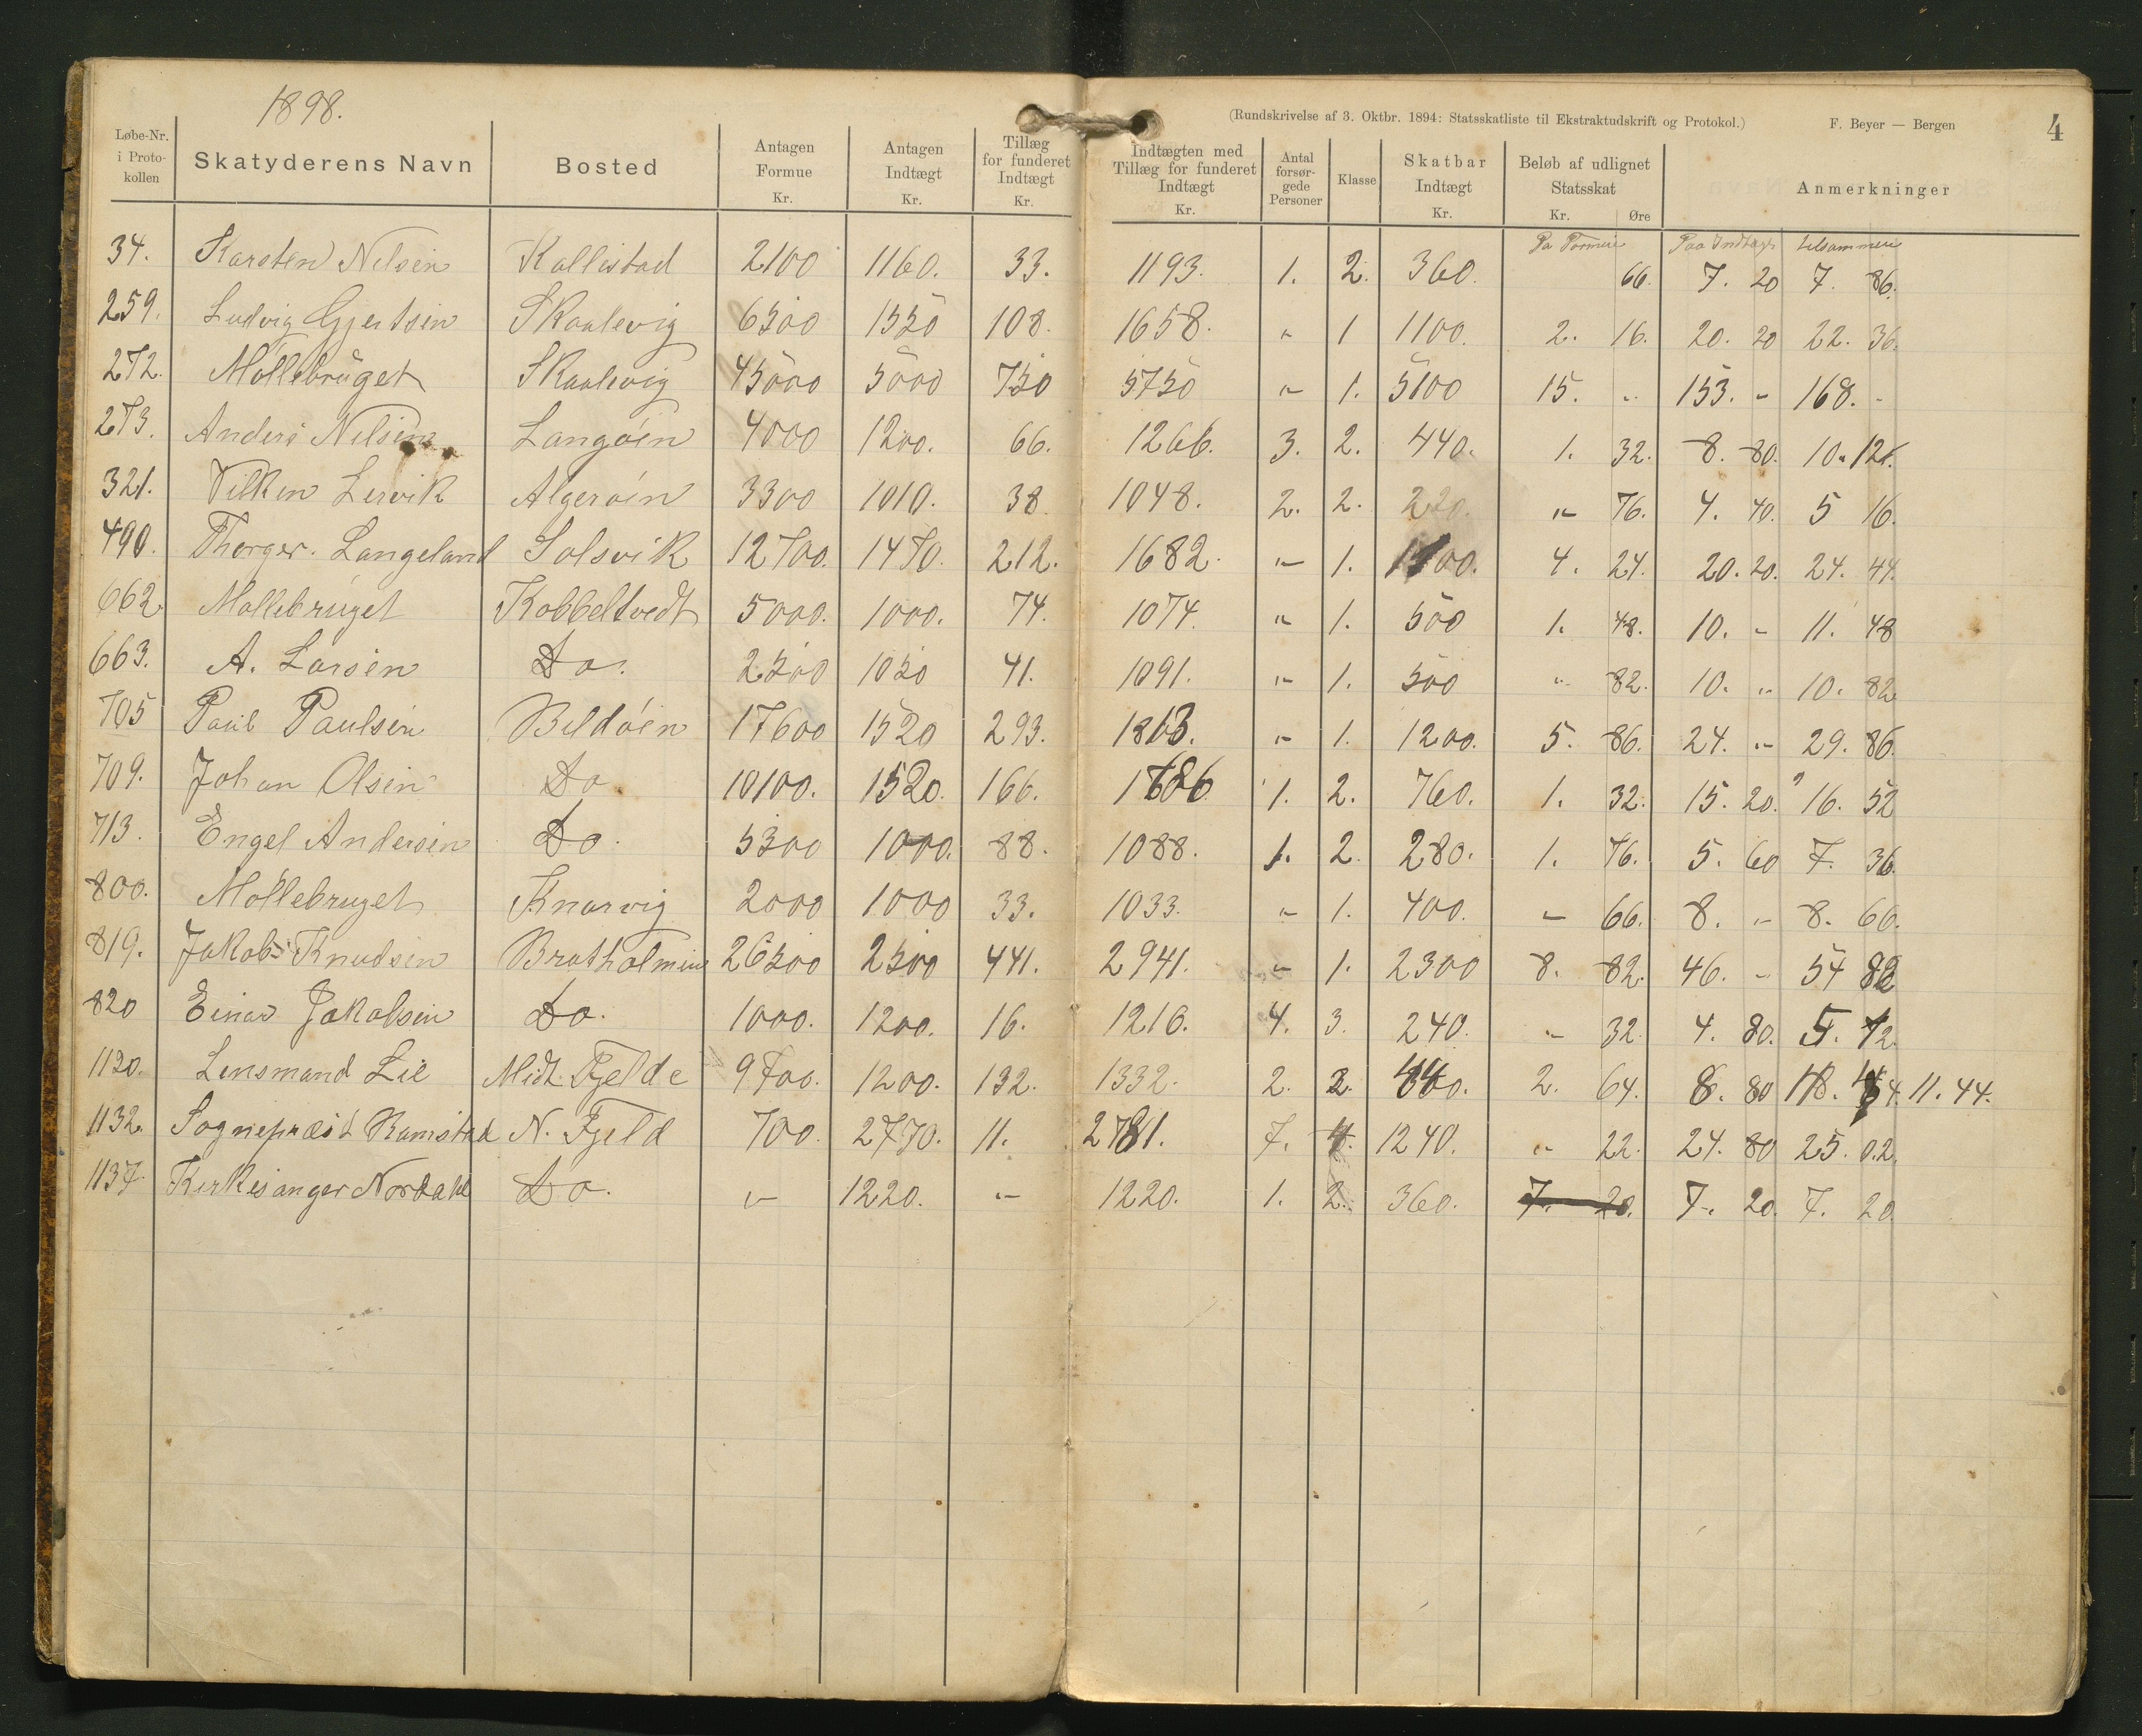 1898.
(Rundskrivelse af 3. Oktbr. 1894: Statsskatliste til Ekstraktudskrift og Protokol.) F. Beyer — Bergen 4
Løbe-Nr. i Proto-kollen Skatyderens Navn Bosted Antagen Formue Kr. Antagen Indtægt Kr. Tillæg for funderet Indtægt Kr. Indtægten med Tillæg for funderet Indtægt Kr. Antal forsør-gede Personer Klasse Skatbar Indtægt Kr. Beløb af udlignet Statsskat Kr. Øre Anmerkninger
Pa Formue Paa Indtægt tilsammen
34. Karsten Nilsen Kallestad 2100 1160. 33. 1193. 1. 2. 360. 66. 7. 20 7. 86.
259. Ludvig Gjertsen Skaalevig 6500 1550 108. 1658. " 1 1100. 2. 16. 20. 20 22. 36.
272. Møllebruget Skaalevig 45000 5000 750 5750 " 1. 5100 15. " 153. " 168. "
273. Anders Nilsen Langøen 4000 1200. 66. 1266. 3. 2. 440. 1. 32. 8. 80. 10. 12.
321. Vilken Lervik Algerøen 3300 1010. 38 1048. 2. 2. 220. " 76. 4. 40. 5 16.
490. Thorger. Langeland Solsvik 12700. 1470. 212. 1682. " 1. 1100. 4. 24. 20. 20. 24. 44.
662. Møllebruget Kobbeltvedt 5000. 1000. 74. 1074. " 1. 500 1. 48. 10. " 11. 48
663. A. Larsen Do. 2500 1050 41. 1091. " 1. 500 " 82. 10. " 10. 82
705 Paul Paulsen Bildøen 17600 1520 293. 1813. " 1. 1200. 5. 86. 24. " 29. 86.
709. Johan Olsen Do 10100. 1520. 166. 1686 1. 2. 760. 1. 32. 15. 20. 16. 52
713. Engel Andersen Do. 5300 1000. 88. 1088. 1. 2. 280. 1. 76. 5. 60 7. 36.
800. Møllebruget Knarvig 2000 1000 33. 1033. " 1. 400. " 66. 8. " 8. 66.
819. Jakob Knudsen Bratholmen 26500 2500 441. 2941. " 1. 2300 8. 82. 46. " 54 82
820 Einar Jakobsen Do. 1000. 1200. 16. 1216. 4. 3. 240. " 32. 4. 80. 5. 12.
1120. Lensmand Lie Midt. Fjelde 9700. 1200. 132. 1332. 2. 2. 440. 2. 64. 8. 80 11. 44.
1132. Sognepræst Ramstad N. Fjeld 700. 2770. 11. 2781. 7. 4. 1240. " 22. 24. 80 25. 02.
1137. Kirkesanger Nordahl Do. " 1220. " 1220. 1. 2. 360. 7. 20. 7. 20. 7. 20.